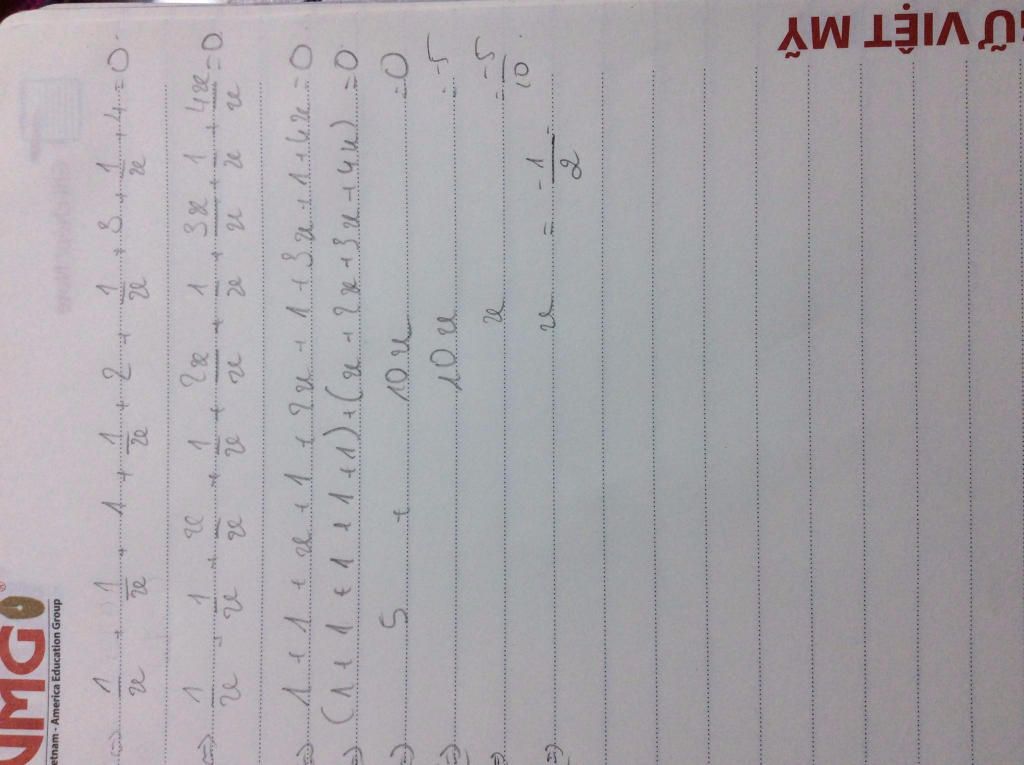 VMG
®
Vietnam - America Education Group
GỮ VIỆT MỸ
⇔ 1/x + 1/x + 1 + 1/x + 2 + 1/x + 3 + 1/x + 4 = 0
⇔ 1/x + 1/x + x/x + 1/x + 2x/x + 1/x + 3x/x + 1/x + 4x/x = 0
⇔ 1 + 1 + x + 1 + 2x + 1 + 3x + 1 + 4x = 0
⇔ (1 + 1 + 1 + 1 + 1) + (x + 2x + 3x + 4x) = 0
⇔ 5 + 10x = 0
⇔ 10x = -5
⇔ x = -5/10
⇔ x = -1/2